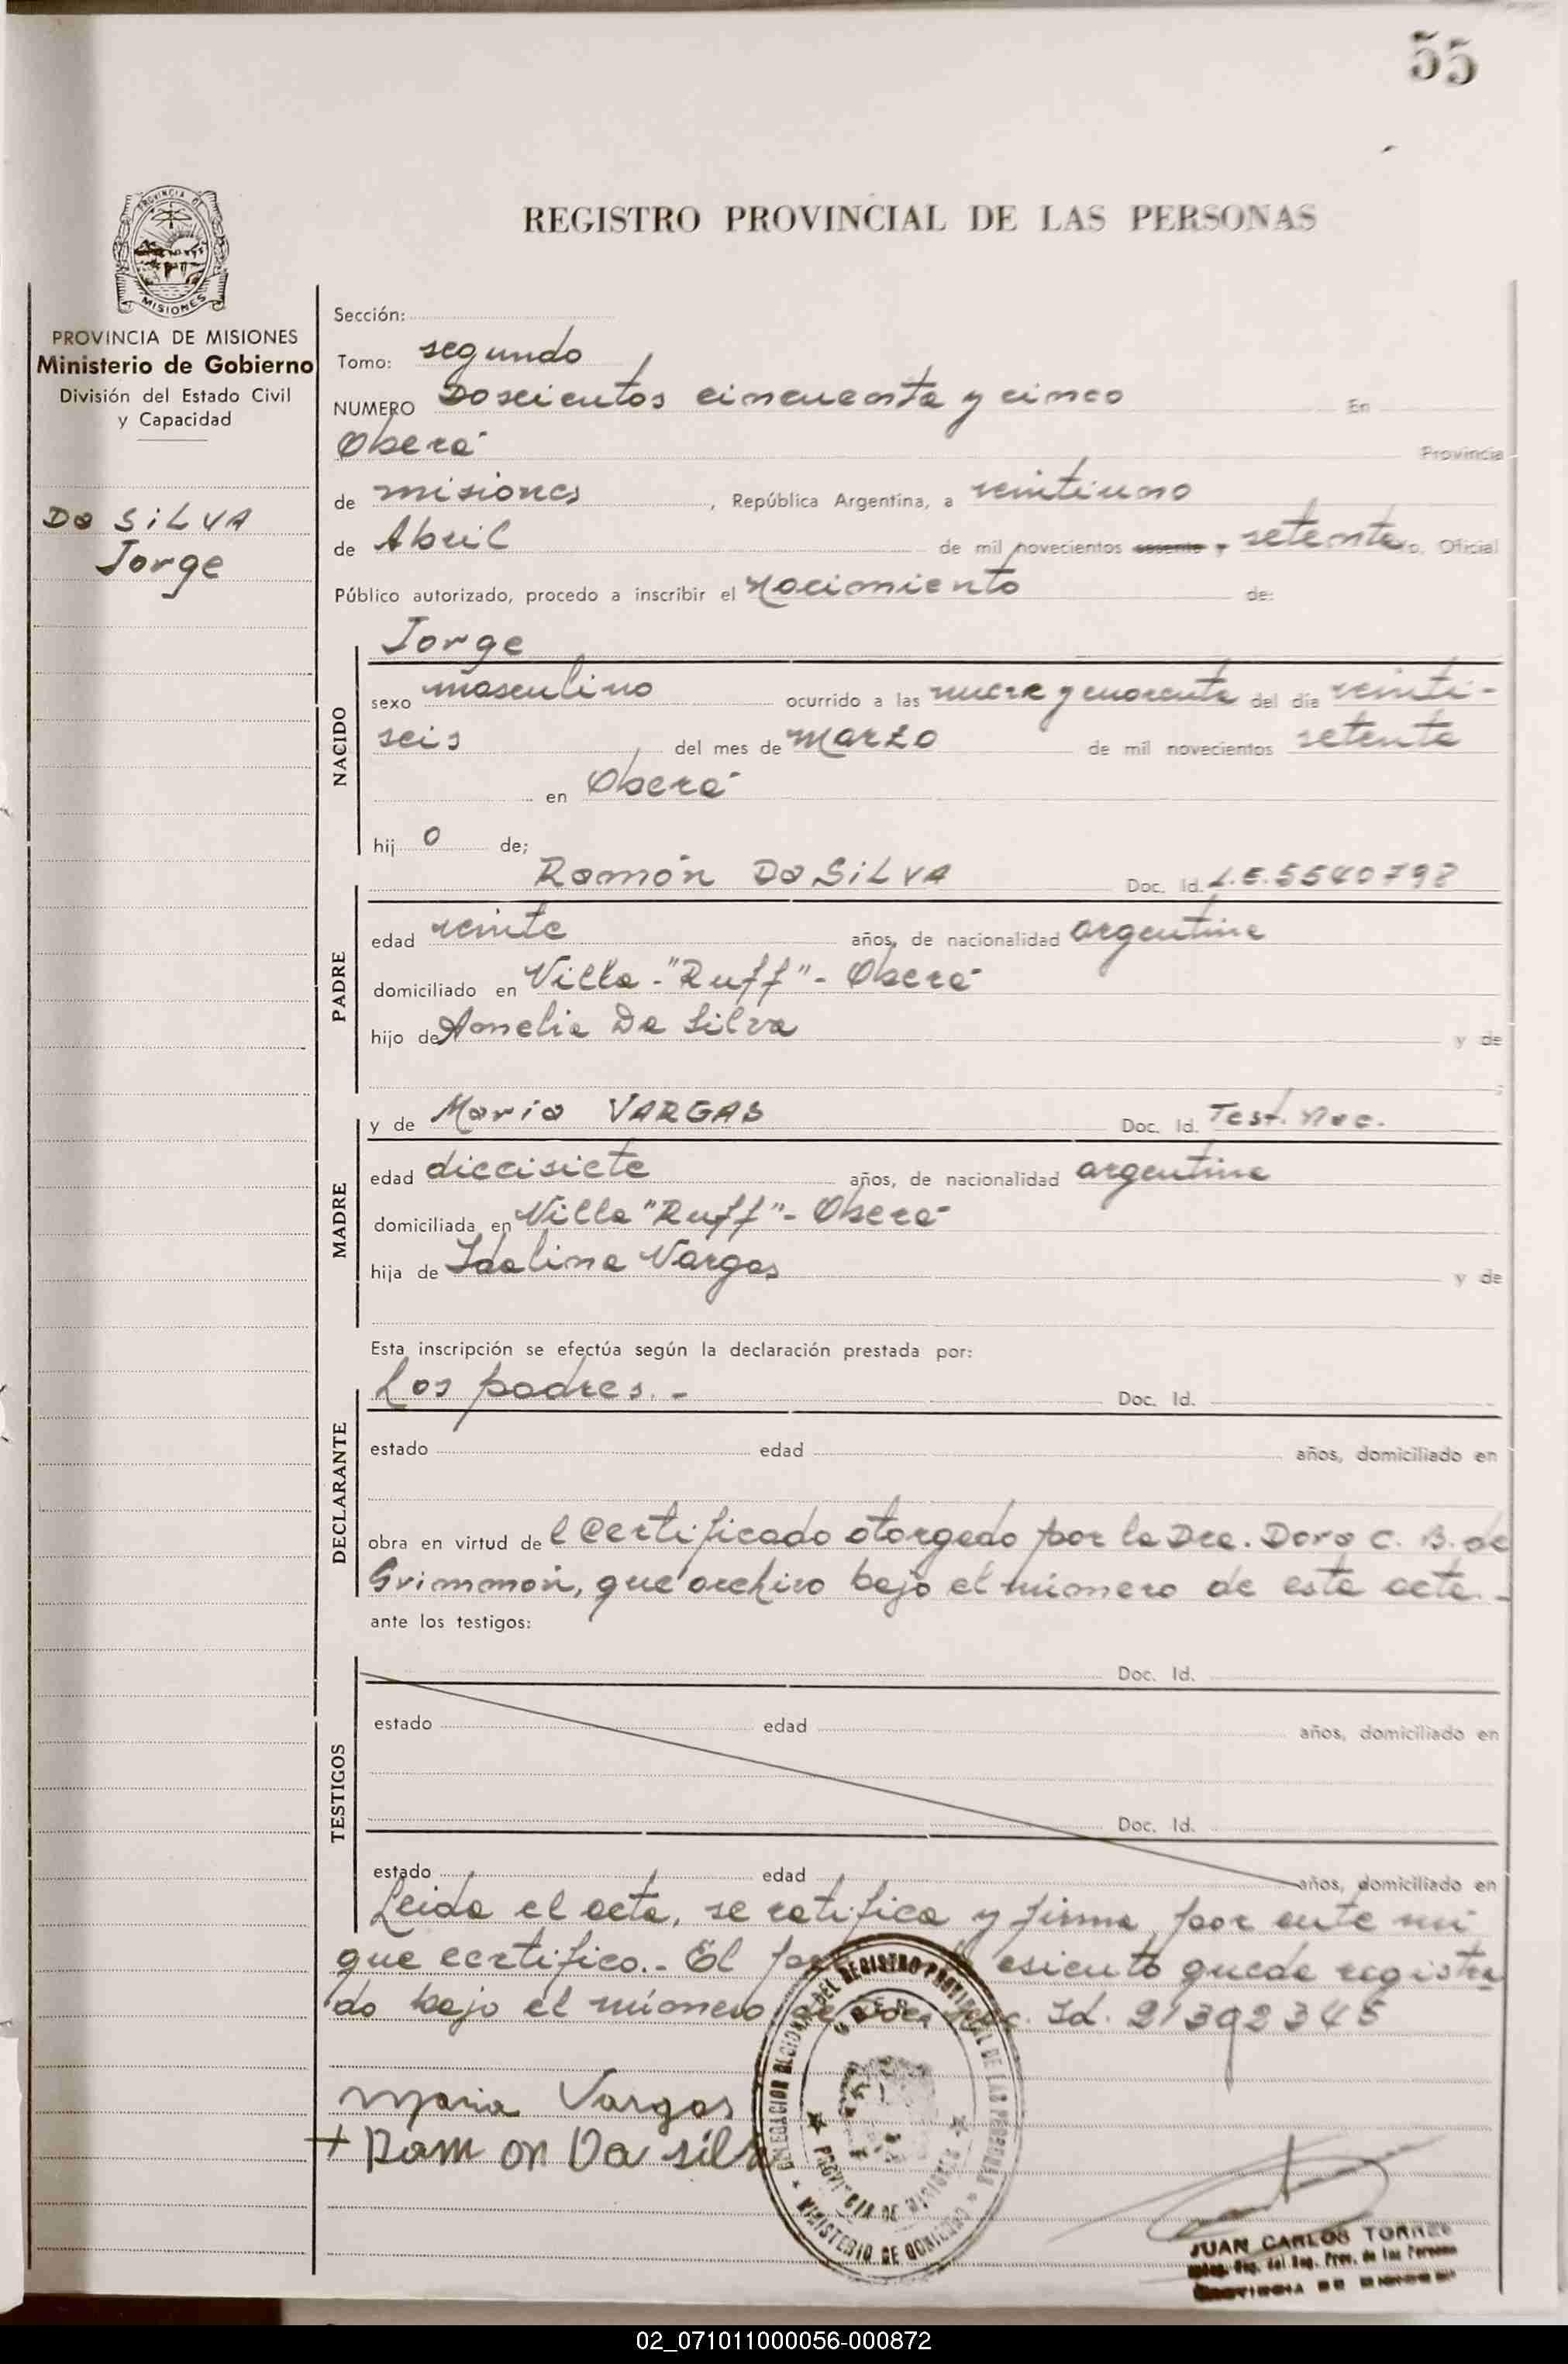 55
REGISTRO PROVINCIAL DE LAS PERSONAS
PROVINCIA DE
MISIONES
PROVINCIA DE MISIONES
Ministerio de Gobierno
División del Estado Civil
y Capacidad
Da SiLVA
Jorge
Sección:
Tomo: segundo
NUMERO Doscientos cincuenta y cinco En
Oberá Provincia
de misiones , República Argentina, a veintiuno
de Abril de mil novecientos sesenta y setenta o, Oficial
Público autorizado, procedo a inscribir el Nacimiento de:
NACIDO
Jorge
sexo masculino ocurrido a las nueve y cuarenta del día veinti-
seis del mes de marzo de mil novecientos setenta
en Oberá
hij o de;
PADRE
Ramón Da SiLVA Doc. Id. L.E. 5540798
edad veinte años, de nacionalidad argentina
domiciliado en Villa-"Ruff"- Oberá
hijo de Amelia Da Silva y de
MADRE
y de Maria VARGAS Doc. Id. Test. Nac.
edad diecisiete años, de nacionalidad argentina
domiciliada en Villa "Ruff"- Oberá
hija de Idalina Vargas y de
Esta inscripción se efectúa según la declaración prestada por:
DECLARANTE
Los padres.- Doc. Id.
estado edad años, domiciliado en
obra en virtud de l Certificado otorgado por la Dra. Dora C. B. de
Grimmon, que archivo bajo el número de esta acta.-
ante los testigos:
TESTIGOS
Doc. Id.
estado edad años, domiciliado en
Doc. Id.
estado edad años, domiciliado en
Leida el acta, se ratifica y firma por ante mi
que certifico.- El asiento queda registra
do bajo el número de Doc. Id. 21392345
Maria Vargas
+ Ram on Da silva
DELEGACION DEL REGISTRO PROVINCIAL DE LAS PERSONAS
PROVINCIA DE MISIONES
MINISTERIO DE GOBIERNO
JUAN CARLOS TORRES
del Reg. Prov. de las Personas
PROVINCIA DE MISIONES
02_071011000056-000872